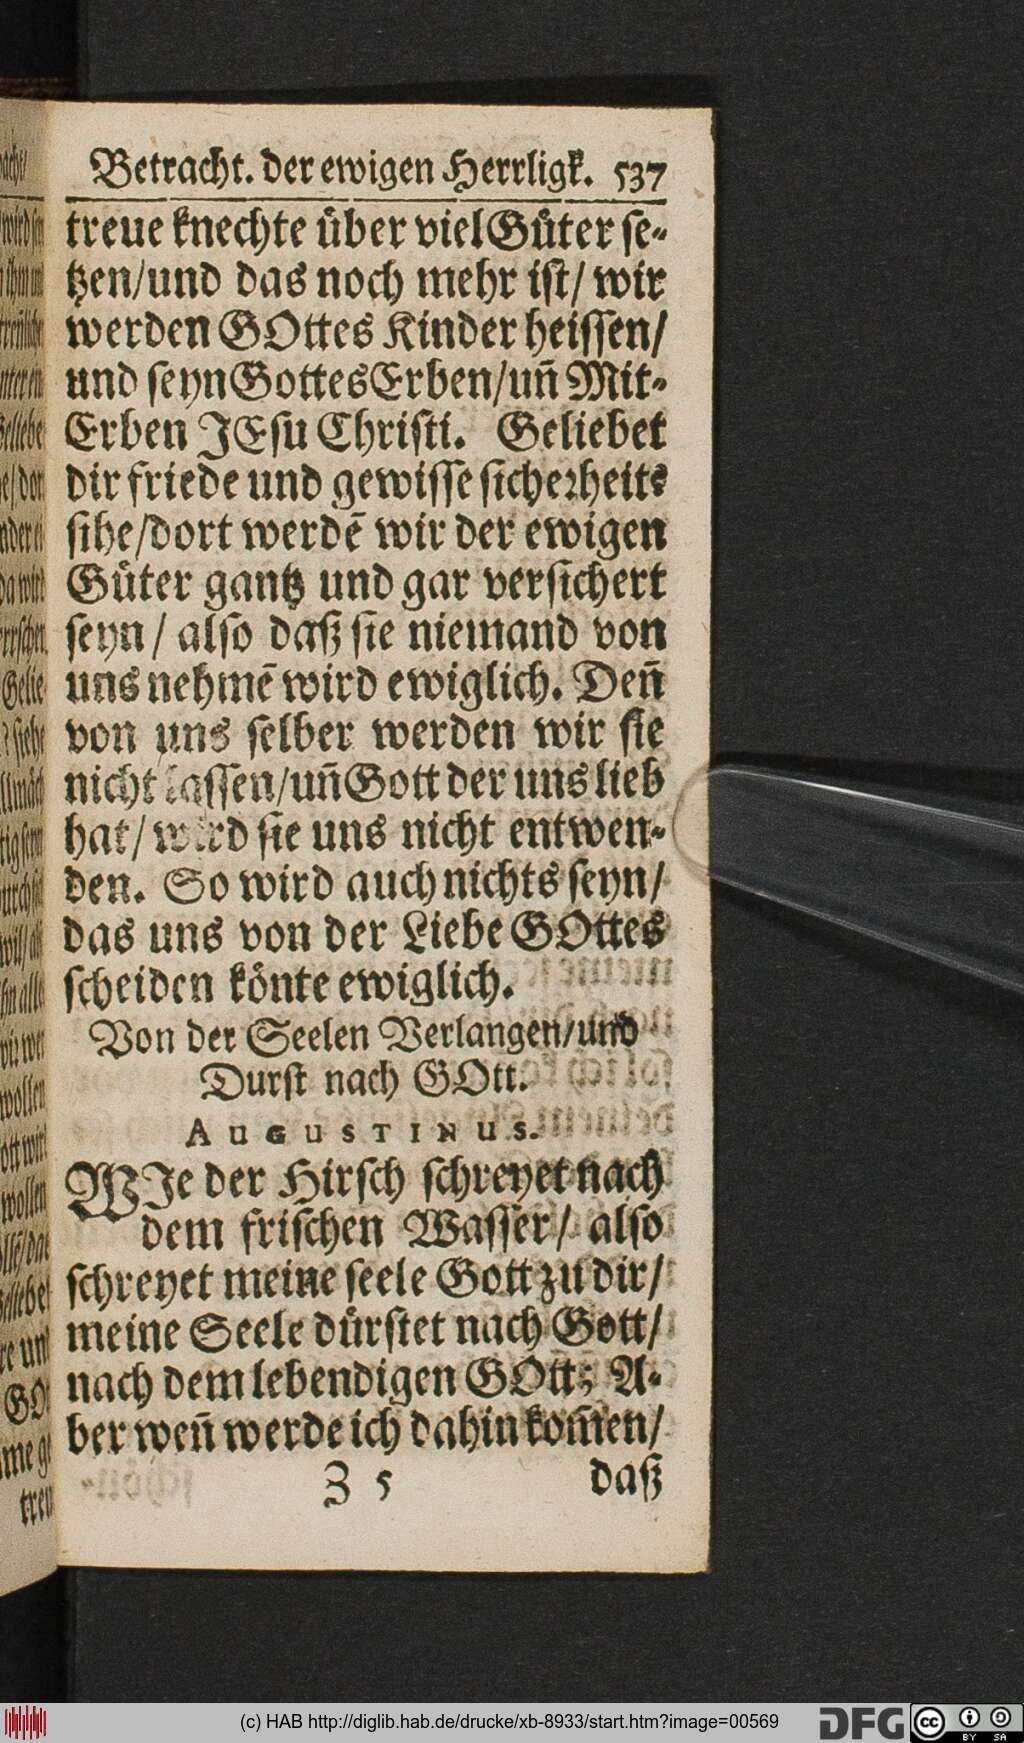 Betracht. der ewigen Herrligk. 537
treue knechte über viel Güter se-
tzen/und das noch mehr ist/ wir
werden GOttes Kinder heissen/
und seyn Gottes Erben/uñ Mit-
Erben JEsu Christi. Geliebet
dir friede und gewisse sicherheit:
sihe/dort werdẽ wir der ewigen
Güter gantz und gar versichert
seyn/ also daß sie niemand von
uns nehmẽ wird ewiglich. Deñ
von uns selber werden wir sie
nicht lassen/uñ Gott der uns lieb
hat/ wird sie uns nicht entwen-
den. So wird auch nichts seyn/
das uns von der Liebe GOttes
scheiden könte ewiglich.
Von der Seelen Verlangen/und
Durst nach GOtt.
AUGUSTINUS.
WJe der Hirsch schreyet nach
dem frischen Wasser/ also
schreyet meine seele Gott zu dir/
meine Seele dürstet nach Gott/
nach dem lebendigen GOtt; A-
ber weñ werde ich dahin kom̃en/
Z 5 daß
(c) HAB http://diglib.hab.de/drucke/xb-8933/start.htm?image=00569
DFG
cc
BY SA